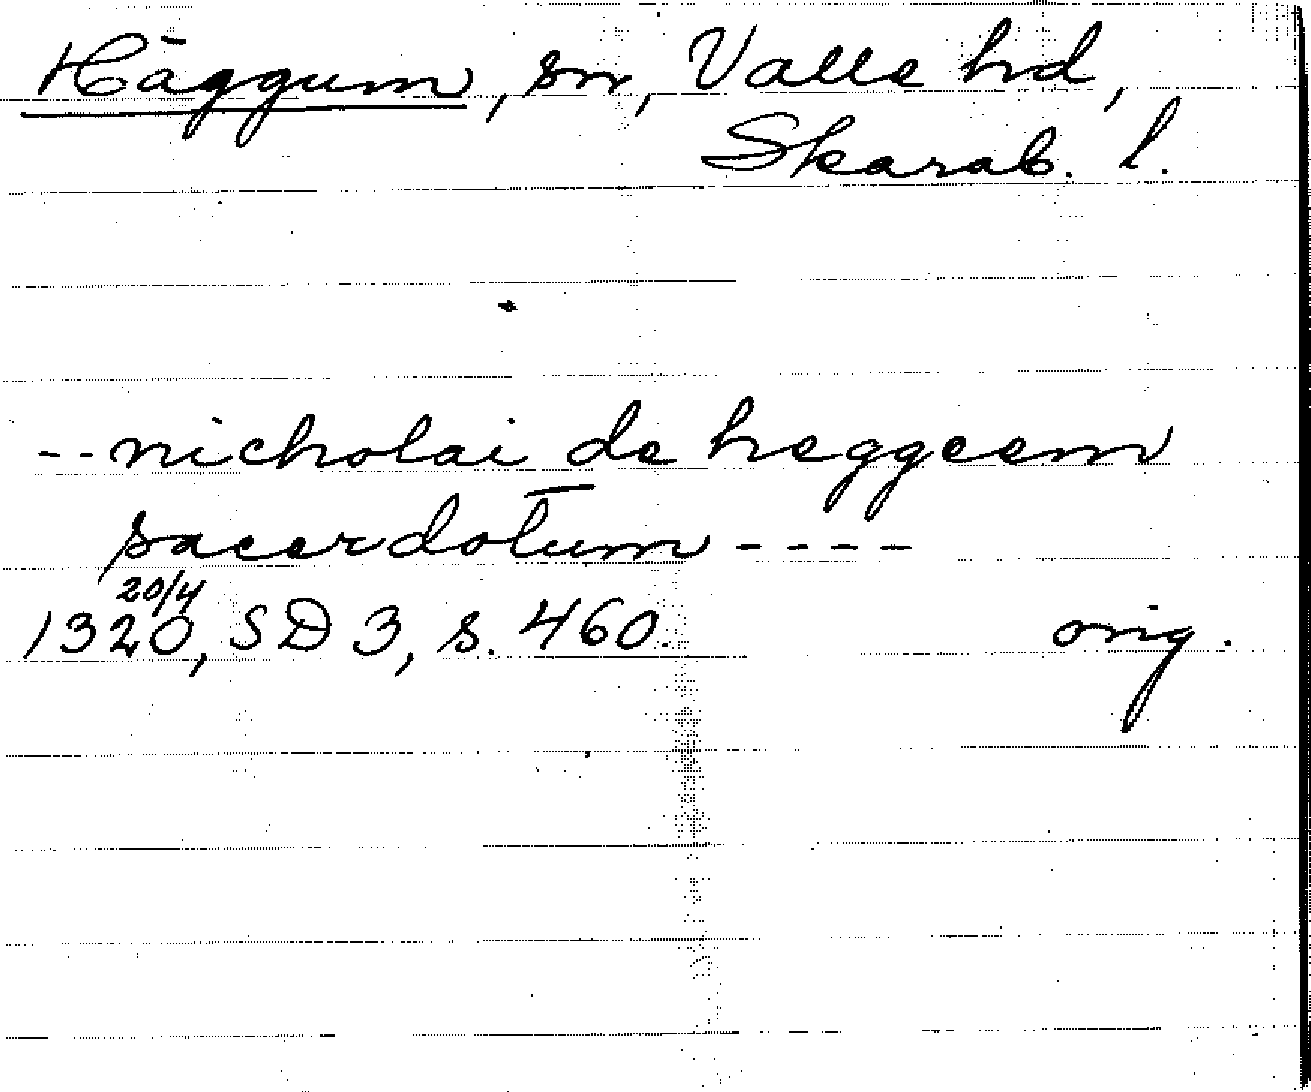 Häggum, sn, Valle hd,
Skarab. l.
--nicholai de heggeem
sacerdotum ----
20/4
1320, SD 3, s. 460. orig.